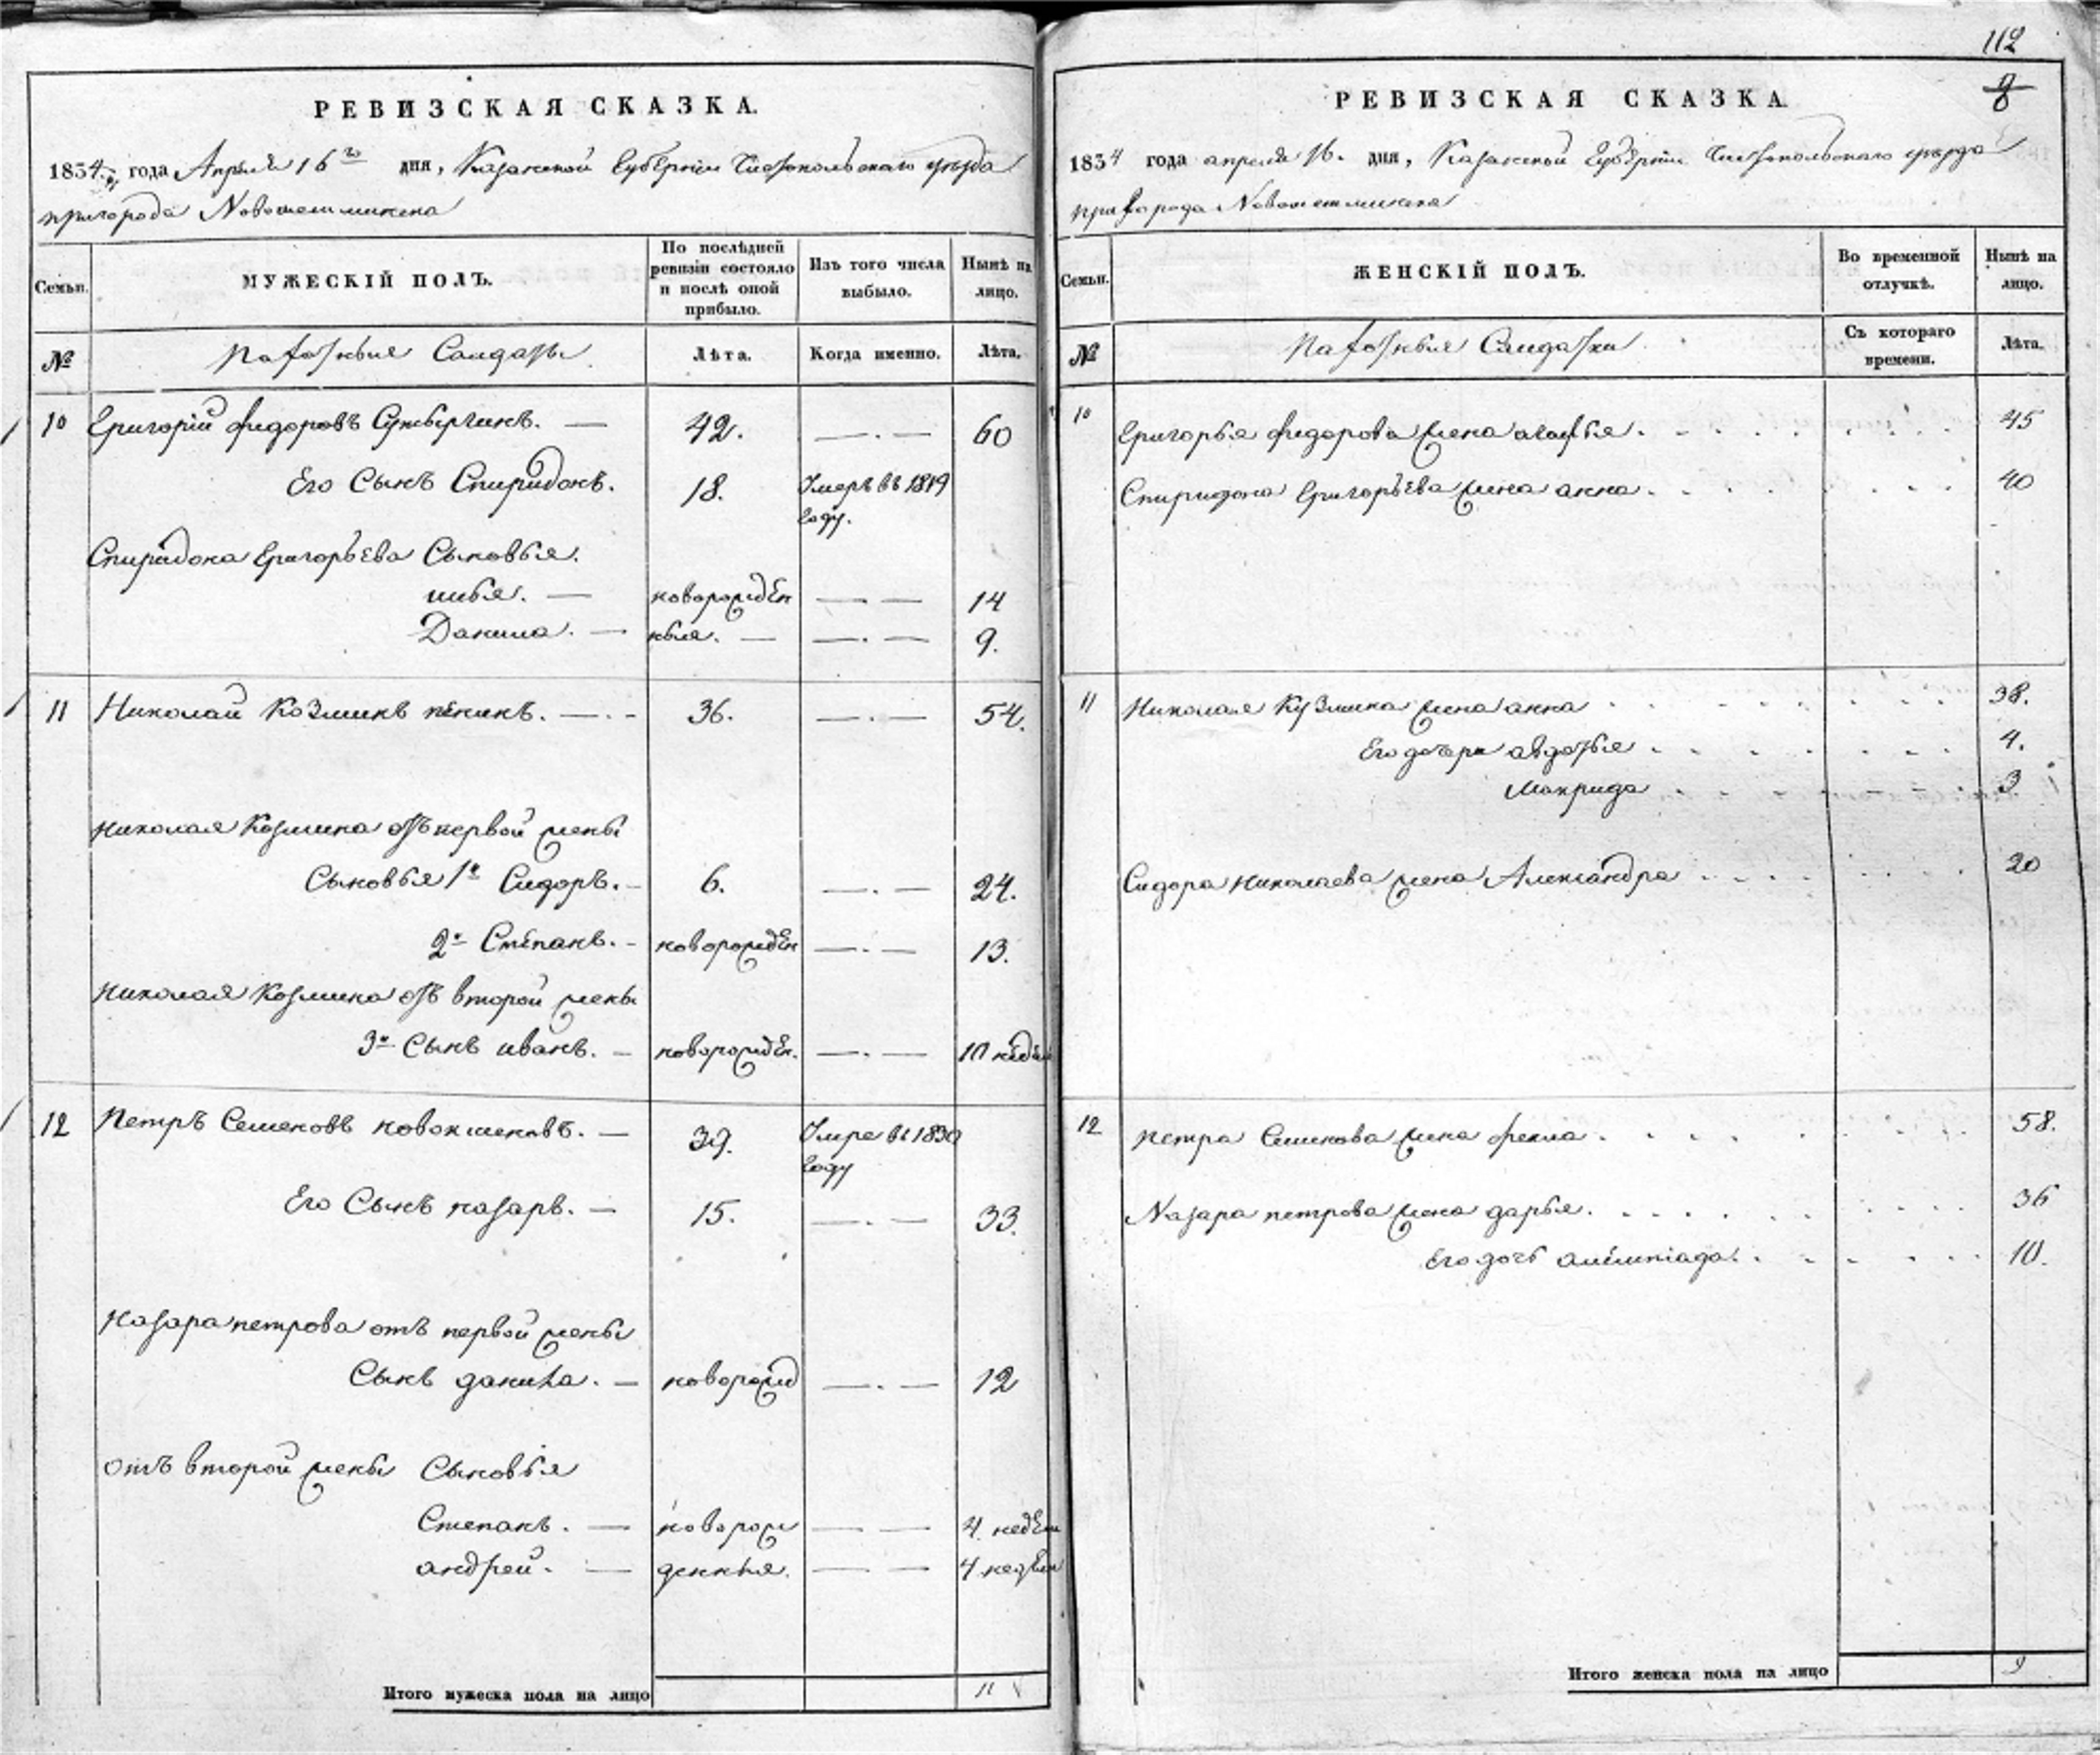 112
РЕВИЗСКАЯ СКАЗКА.
1834 года Апреля 16го дня, Казанской Губернии Чистопольскаго уезда
пригорода Новошешминска
Семьи.
МУЖЕСКІЙ ПОЛЪ.
По послѣдней ревизіи состояло и послѣ оной прибыло.
Изъ того числа выбыло.
Нынѣ на лицо.
№
Пахотныя Солдаты
Лѣта.
Когда именно.
Лѣта.
10 Григорій Федоровъ 42. 60
Его Сынъ Спиридонъ. 18. Умеръ въ 1819 году.
Спиридона Григорьева Сыновья.
илья. новорожден 14
Данила. ныя. 9.
11 Николай Козминъ пенинъ. 36. 54.
Николая Козмина отъ первой жены
Сыновья 1й Сидоръ. 6. 24.
2й Степанъ. новорожден 13.
Николая Козмина отъ второй жены
3й Сынъ иванъ. новорожден. 10 недель
12 Петръ Семеновъ новокшеновъ. 39. Умре въ 1830 году
Его Сынъ назаръ. 15. 33.
Назара петрова отъ первой жены
Сынъ данила. новорожд 12
отъ второй жены Сыновья
Степанъ. новорож 4 недели
андрей. денныя. 4 недели
Итого мужеска пола на лицо 11
РЕВИЗСКАЯ СКАЗКА
8
1834 года апреля 16. дня, Казанской Губернии Чистопольскаго уезда
пригорода Новошешминска
Семьи.
ЖЕНСКІЙ ПОЛЪ.
Во временной отлучкѣ.
Нынѣ на лицо.
№
Пахотныя Солдатки
Съ котораго времени.
Лѣта.
10 Григорья Федорова жена агафья. 45
Спиридона Григорьева жена анна. 40
11 Николая Кузмина жена анна 38.
Его дочери авдотья 4.
Макрида 3.
Сидора Николаева жена Александра 20
12 петра Семенова жена фекла. 58.
Назара петрова жена дарья. 36
Его дочь олимпіада. 10.
Итого женска пола на лицо 9